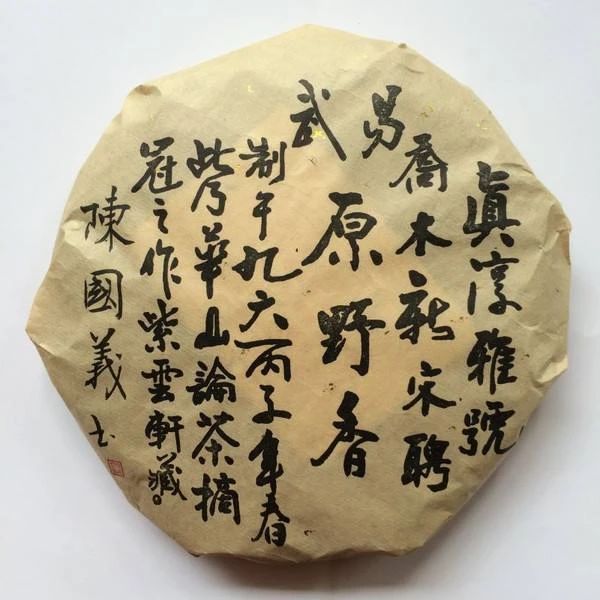 眞淳雅號
喬木新宋聘
易武
原野香
制于九六丙子年春
此乃華山論茶摘
冠之作紫雲軒藏。
陳國義书